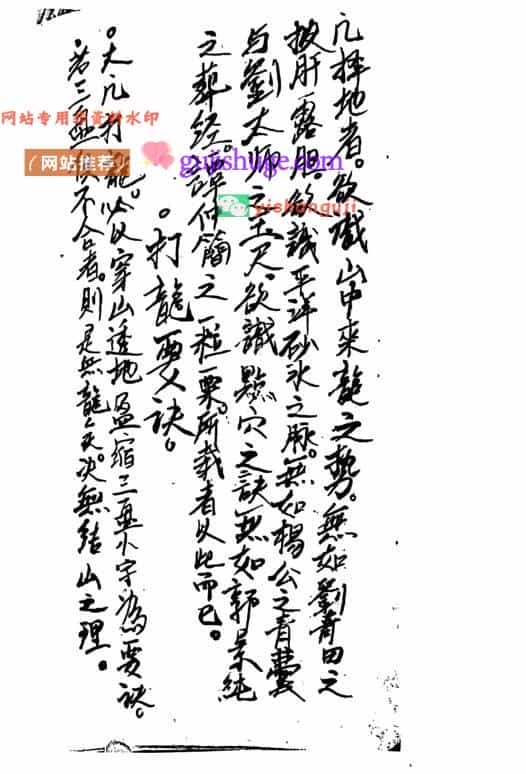 凡擇地者。欲識山中來龍之勢。無如劉青田之
披肝露胆。欲識平洋砂水之脉。無如楊公之青囊
与劉太師之玉尺、欲識點穴之訣、無如郭景純
之葬經。譚仲簡之一粒粟。所載者以此而已。
。打龍要訣。
。大凡打龍。必以穿山透地盈縮三盘小字為要訣。
若三盘俱不合者。則是無龍之穴。决無結山之理。
网站专用 水印
(网站推荐)
gujishuge.com
yishanguji